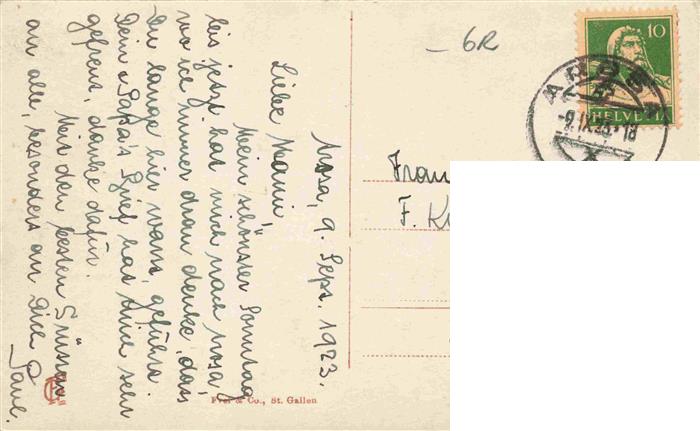 Arosa, 9. Sept. 1923.
Liebe Mami!
Mein schönster Sonntag
bis jetzt hat mich nach Arosa
wo ich immer dran denke, dass
Du lange hier warst, geführt.
Dein & Papa's Brief hat mich sehr
gefreut, danke dafür.
Mit den besten Grüssen
an alle, besonders an Dich Paul.
– 6R
10
HELVETIA
AROSA
-9.IX.23.-18
Frau
F.
Frei & Co., St. Gallen